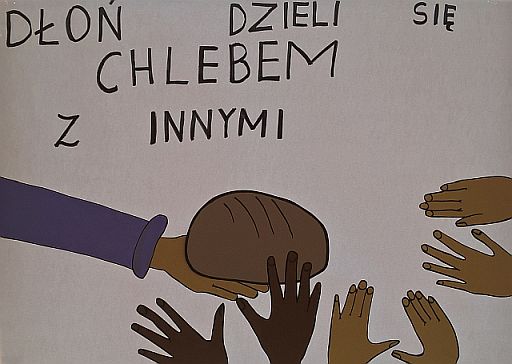 DŁOŃ DZIELI SIĘ
CHLEBEM
Z INNYMI